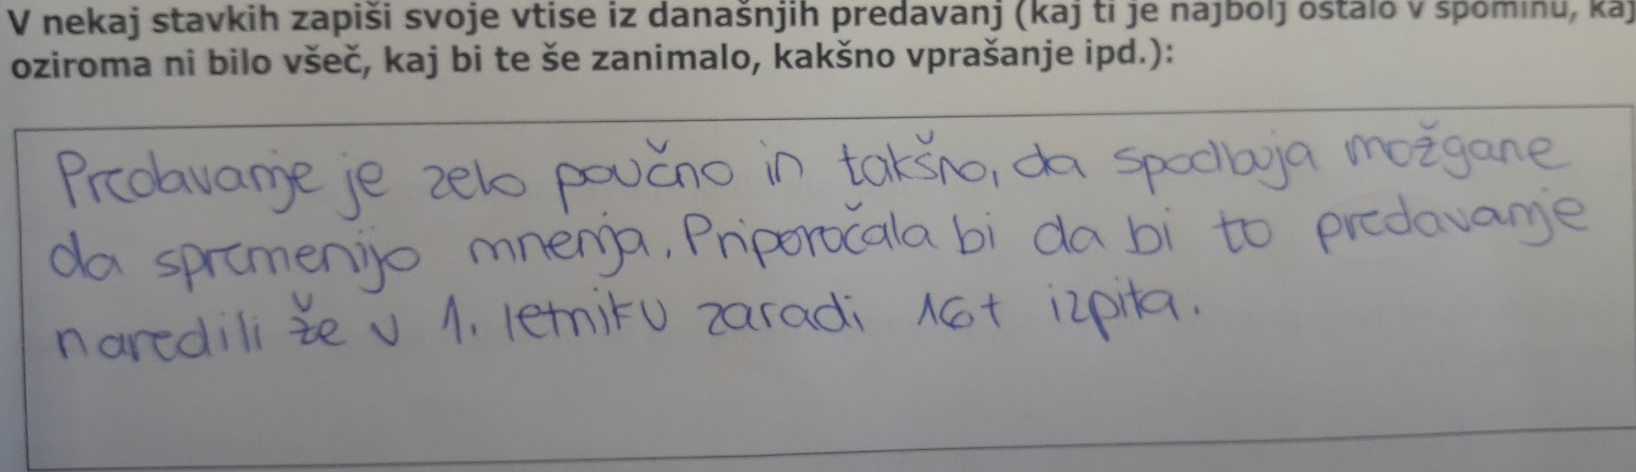 V nekaj stavkih zapiši svoje vtise iz današnjih predavanj (kaj ti je najbolj ostalo v spominu, kaj
oziroma ni bilo všeč, kaj bi te še zanimalo, kakšno vprašanje ipd.):
Predavanje je zelo poučno in takšno, da spodbuja možgane
da spremenijo mnenja. Priporočala bi da bi to predavanje
naredili že v 1. letniku zaradi 16+ izpita.